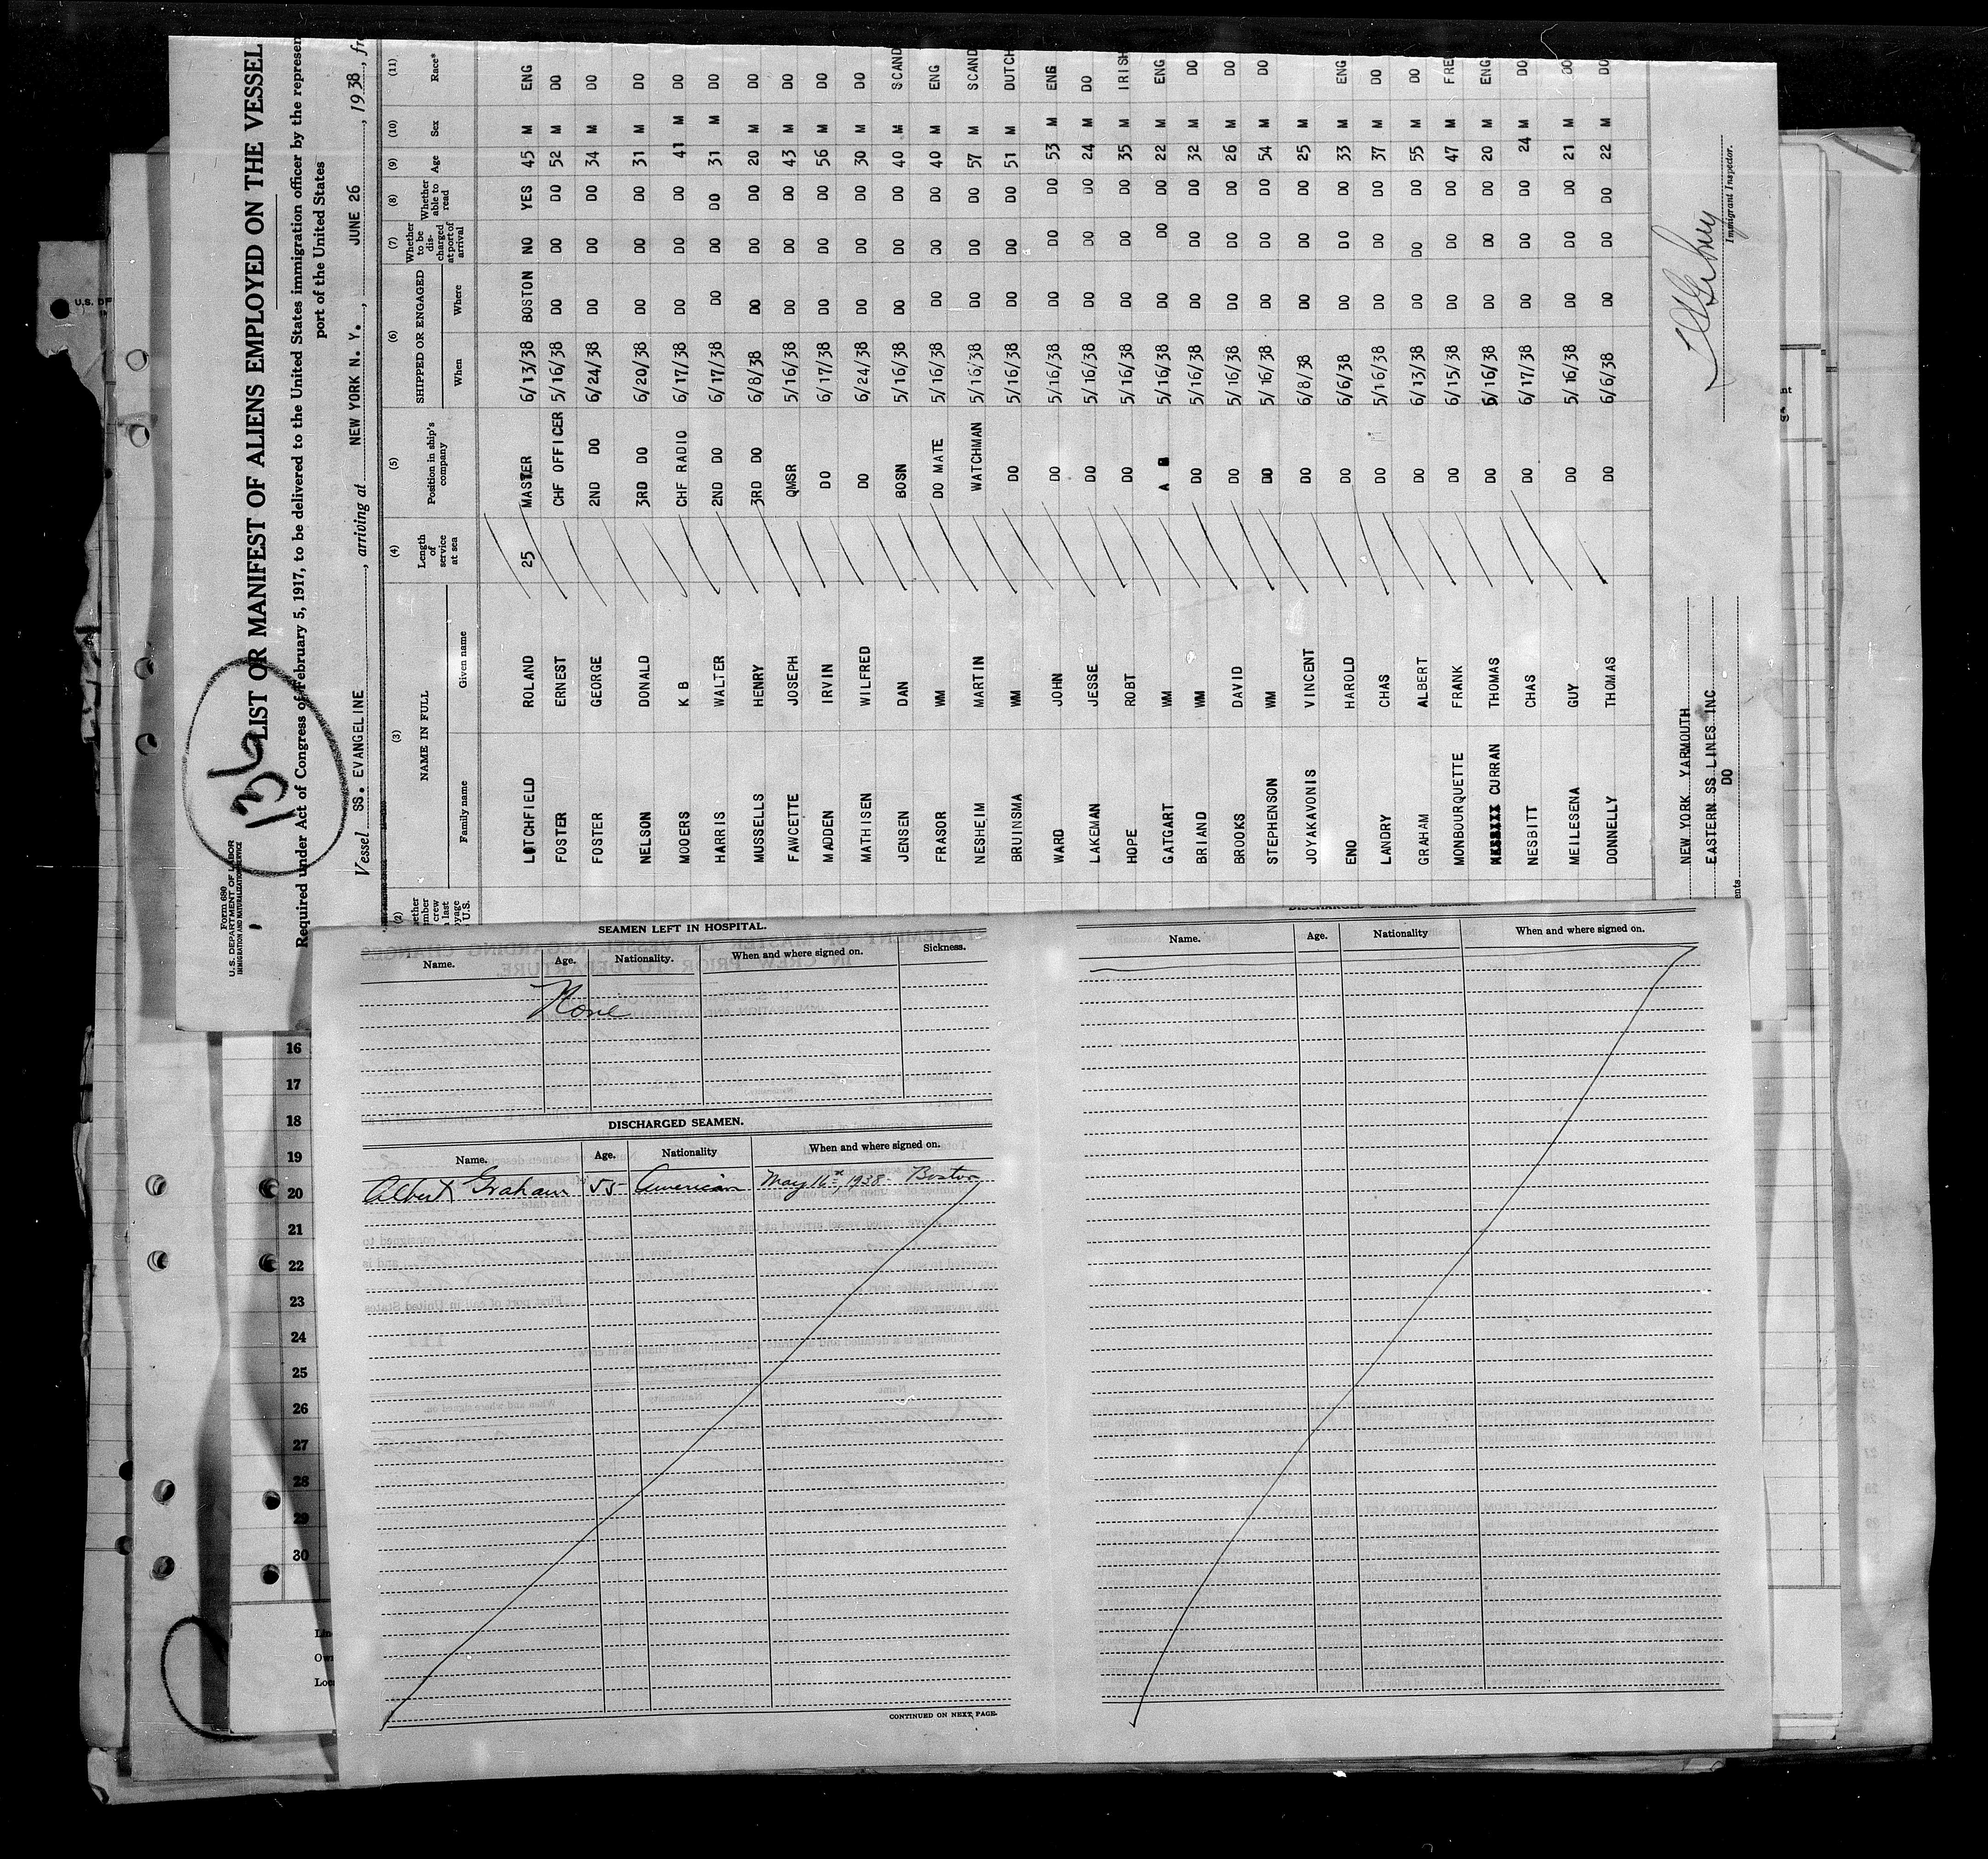 Form 680
U. S. DEPARTMENT OF LABOR
IMMIGRATION AND NATURALIZATION SERVICE
136
LIST OR MANIFEST OF ALIENS EMPLOYED ON THE VESSEL
Required under Act of Congress of February 5, 1917, to be delivered to the United States immigration officer by the represen
port of the United States
Vessel SS. EVANGELINE, arriving at NEW YORK N. Y., JUNE 26, 1938, fr
(2) (3) (4) (5) (6) (7) (8) (9) (10) (11)
NAME IN FULL Length of service at sea Position in ship's company SHIPPED OR ENGAGED Whether to be discharged at port of arrival Whether able to read Age Sex Race*
Family name Given name When Where
LITCHFIELD ROLAND 25 MASTER 6/13/38 BOSTON NO YES 45 M ENG
FOSTER ERNEST CHF OFFICER 5/16/38 DO DO DO 52 M DO
FOSTER GEORGE 2ND DO 6/24/38 DO DO DO 34 M DO
NELSON DONALD 3RD DO 6/20/38 DO DO DO 31 M DO
MOOERS K B CHF RADIO 6/17/38 DO DO DO 41 M DO
HARRIS WALTER 2ND DO 6/17/38 DO DO DO 31 M DO
MUSSELLS HENRY 3RD DO 6/8/38 DO DO DO 20 M DO
FAWCETTE JOSEPH QMSR 5/16/38 DO DO DO 43 M DO
MADDEN IRVIN DO 6/17/38 DO DO DO 56 M DO
MATHISEN WILFRED DO 6/24/38 DO DO DO 30 M DO
JENSEN DAN BOSN 5/16/38 DO DO DO 40 M SCAND
FRASOR WM DO MATE 5/16/38 DO DO DO 40 M ENG
NESHEIM MARTIN WATCHMAN 5/16/38 DO DO DO 57 M SCAND
BRUINSMA WM DO 5/16/38 DO DO DO 51 M DUTCH
WARD JOHN DO 5/16/38 DO DO DO 53 M ENG
LAKEMAN JESSE DO 5/16/38 DO DO DO 24 M DO
HOPE ROBT DO 5/16/38 DO DO DO 35 M IRISH
GATGART WM A B 5/16/38 DO DO DO 22 M ENG
BRIAND WM DO 5/16/38 DO DO DO 32 M DO
BROOKS DAVID DO 5/16/38 DO DO DO 26 M DO
STEPHENSON WM DO 5/16/38 DO DO DO 54 M DO
JOYAKAVONIS VINCENT DO 6/8/38 DO DO DO 25 M
ENO HAROLD DO 6/6/38 DO DO DO 33 M ENG
LANDRY CHAS DO 5/16/38 DO DO DO 37 M DO
GRAHAM ALBERT DO 6/13/38 DO DO DO 55 M DO
MONBOURQUETTE FRANK DO 6/15/38 DO DO DO 47 M FRE
CURRAN THOMAS DO 5/16/38 DO DO DO 20 M ENG
NESBITT CHAS DO 6/17/38 DO DO DO 24 M DO
MEILESENA GUY DO 5/16/38 DO DO DO 21 M DO
DONNELLY THOMAS DO 6/6/38 DO DO DO 22 M DO
NEW YORK YARMOUTH
EASTERN SS LINES INC
DO
Immigrant Inspector.
U.S. DE
SEAMEN LEFT IN HOSPITAL.
Name. Age. Nationality. When and where signed on. Sickness.
None
DISCHARGED SEAMEN.
Name. Age. Nationality When and where signed on.
Albert Graham 55 American May 16th, 1938- Boston
CONTINUED ON NEXT PAGE.
Name. Age. Nationality When and where signed on.
16
17
18
19
20
21
22
23
24
25
26
27
28
29
30